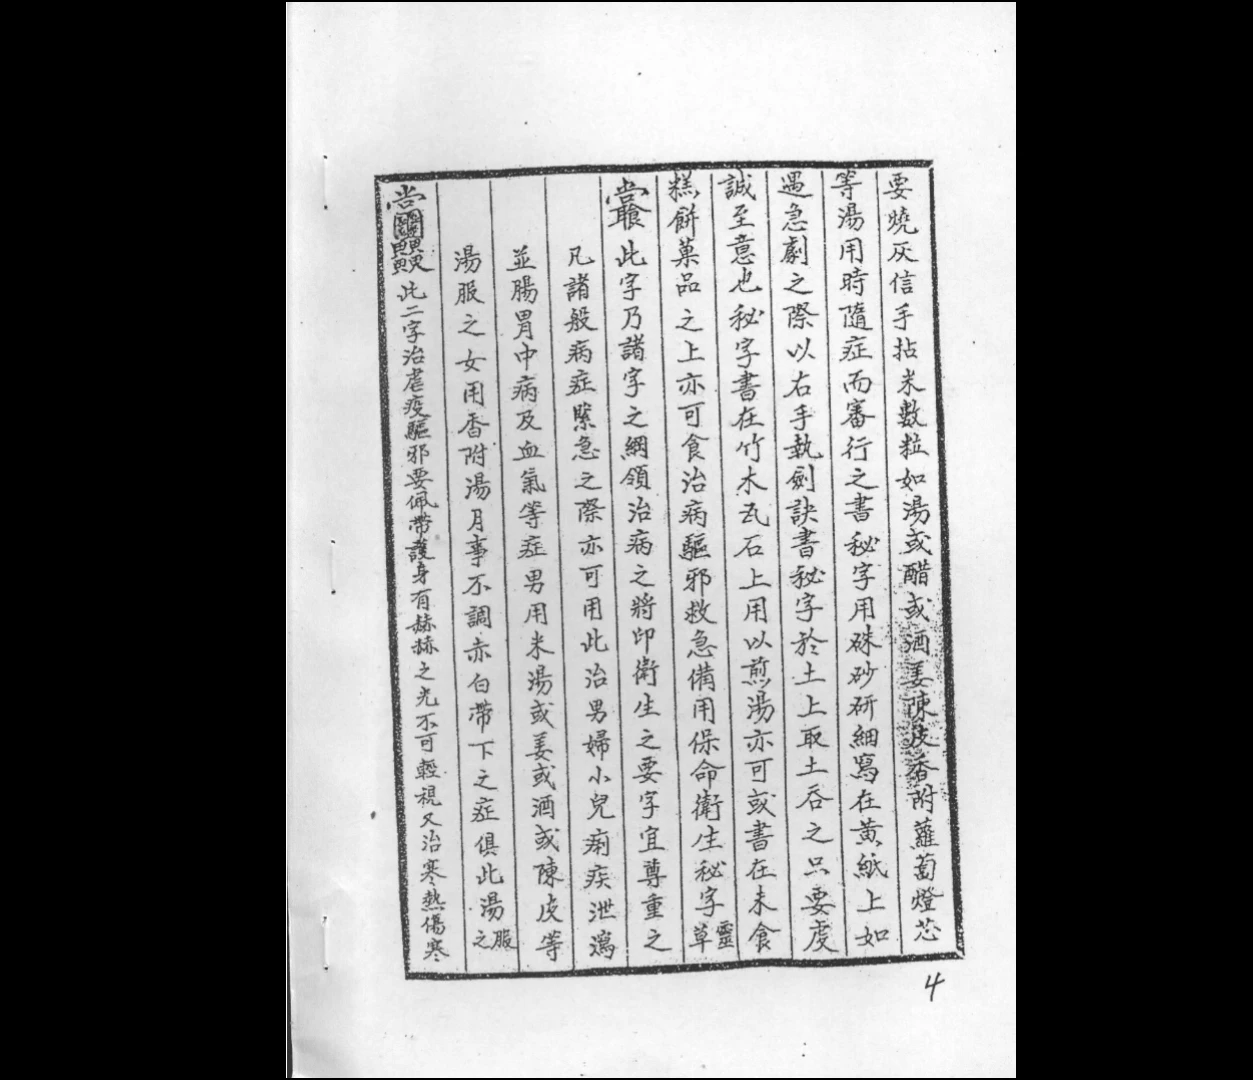 要燒灰信手拈米數粒如湯或醋或酒姜陳皮香附蘿蔔燈芯
等湯用時隨症而審行之書秘字用硃砂研細寫在黃紙上如
遇急劇之際以右手執劍訣書秘字於土上取土吞之只要虔
誠至意也秘字書在竹木瓦石上用以煎湯亦可或書在未食
糕餅菓品之上亦可食治病驅邪救急備用保命衛生秘字靈草
此字乃諸字之綱領治病之將印衛生之要字宜尊重之
凡諸般病症緊急之際亦可用此治男婦小兒痢疾泄瀉
並腸胃中病及血氣等症男用米湯或姜或酒或陳皮等
湯服之女用香附湯月事不調赤白帶下之症俱此湯服之
此二字治虐疫驅邪要佩帶護身有赫赫之光不可輕視又治寒熱傷寒
4